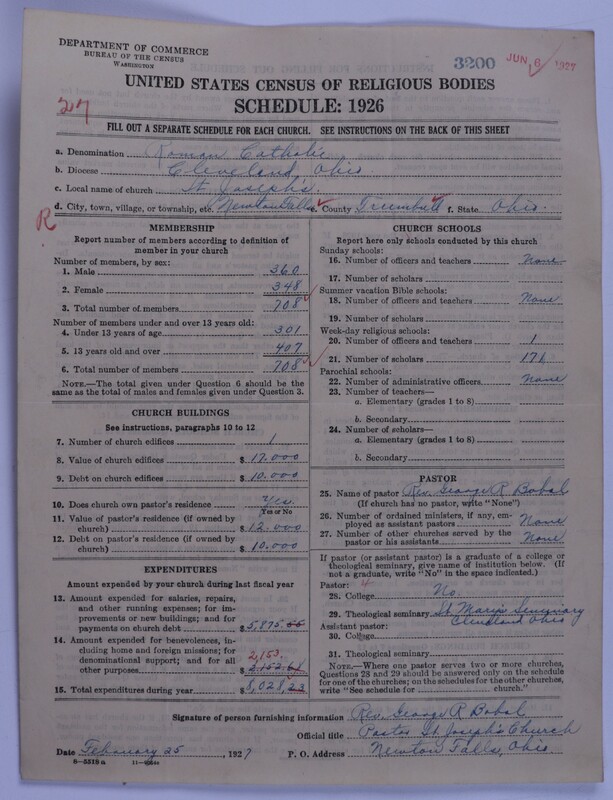 DEPARTMENT OF COMMERCE
BUREAU OF THE CENSUS
WASHINGTON
3200
JUN 6 1927
UNITED STATES CENSUS OF RELIGIOUS BODIES
SCHEDULE: 1926
FILL OUT A SEPARATE SCHEDULE FOR EACH CHURCH. SEE INSTRUCTIONS ON THE BACK OF THIS SHEET
a. Denomination Roman Catholic
b. Diocese Cleveland, Ohio
c. Local name of church St. Joseph's.
d. City, town, village, or township, etc. Newton Falls e. County Trumbull f. State Ohio.
R
MEMBERSHIP
Report number of members according to definition of
member in your church
Number of members, by sex:
1. Male 360
2. Female 348
3. Total number of members 708
Number of members under and over 13 years old:
4. Under 13 years of age 301
5. 13 years old and over 407
6. Total number of members 708
NOTE.—The total given under Question 6 should be the
same as the total of males and females given under Question 3.
CHURCH BUILDINGS
See instructions, paragraphs 10 to 12
7. Number of church edifices 1
8. Value of church edifices $ 17.000
9. Debt on church edifices $ 10.000
10. Does church own pastor's residence Yes.
Yes or No
11. Value of pastor's residence (if owned by
church) $ 12.000
12. Debt on pastor's residence (if owned by
church) $ 10.000
EXPENDITURES
Amount expended by your church during last fiscal year
13. Amount expended for salaries, repairs,
and other running expenses; for im-
provements or new buildings; and for
payments on church debt $ 5,875.
14. Amount expended for benevolences, in-
cluding home and foreign missions; for
denominational support; and for all
2,153.
other purposes $ 2,152.68
15. Total expenditures during year $ 8,028.23
CHURCH SCHOOLS
Report here only schools conducted by this church
Sunday schools:
16. Number of officers and teachers None
17. Number of scholars
Summer vacation Bible schools:
18. Number of officers and teachers None
19. Number of scholars
Week-day religious schools:
20. Number of officers and teachers 1
21. Number of scholars 171
Parochial schools:
22. Number of administrative officers None
23. Number of teachers—
a. Elementary (grades 1 to 8)
b. Secondary
24. Number of scholars—
a. Elementary (grades 1 to 8)
b. Secondary
PASTOR
25. Name of pastor Rev. George R Bobal
(If church has no pastor, write "None")
26. Number of ordained ministers, if any, em-
ployed as assistant pastors None
27. Number of other churches served by the
pastor or his assistants None
If pastor (or assistant pastor) is a graduate of a college or
theological seminary, give name of institution below. (If
not a graduate, write "No" in the space indicated.)
Pastor: 4
28. College No.
29. Theological seminary St. Mary's Seminary
Cleveland Ohio
Assistant pastor:
30. College
31. Theological seminary
NOTE.—Where one pastor serves two or more churches,
Questions 28 and 29 should be answered only on the schedule
for one of the churches; on the schedules for the other churches,
write "See schedule for church."
Signature of person furnishing information Rev. George R Bobal
Official title Pastor St. Joseph's Church
Date February 25, 1927 P. O. Address Newton Falls, Ohio.
8—5518a